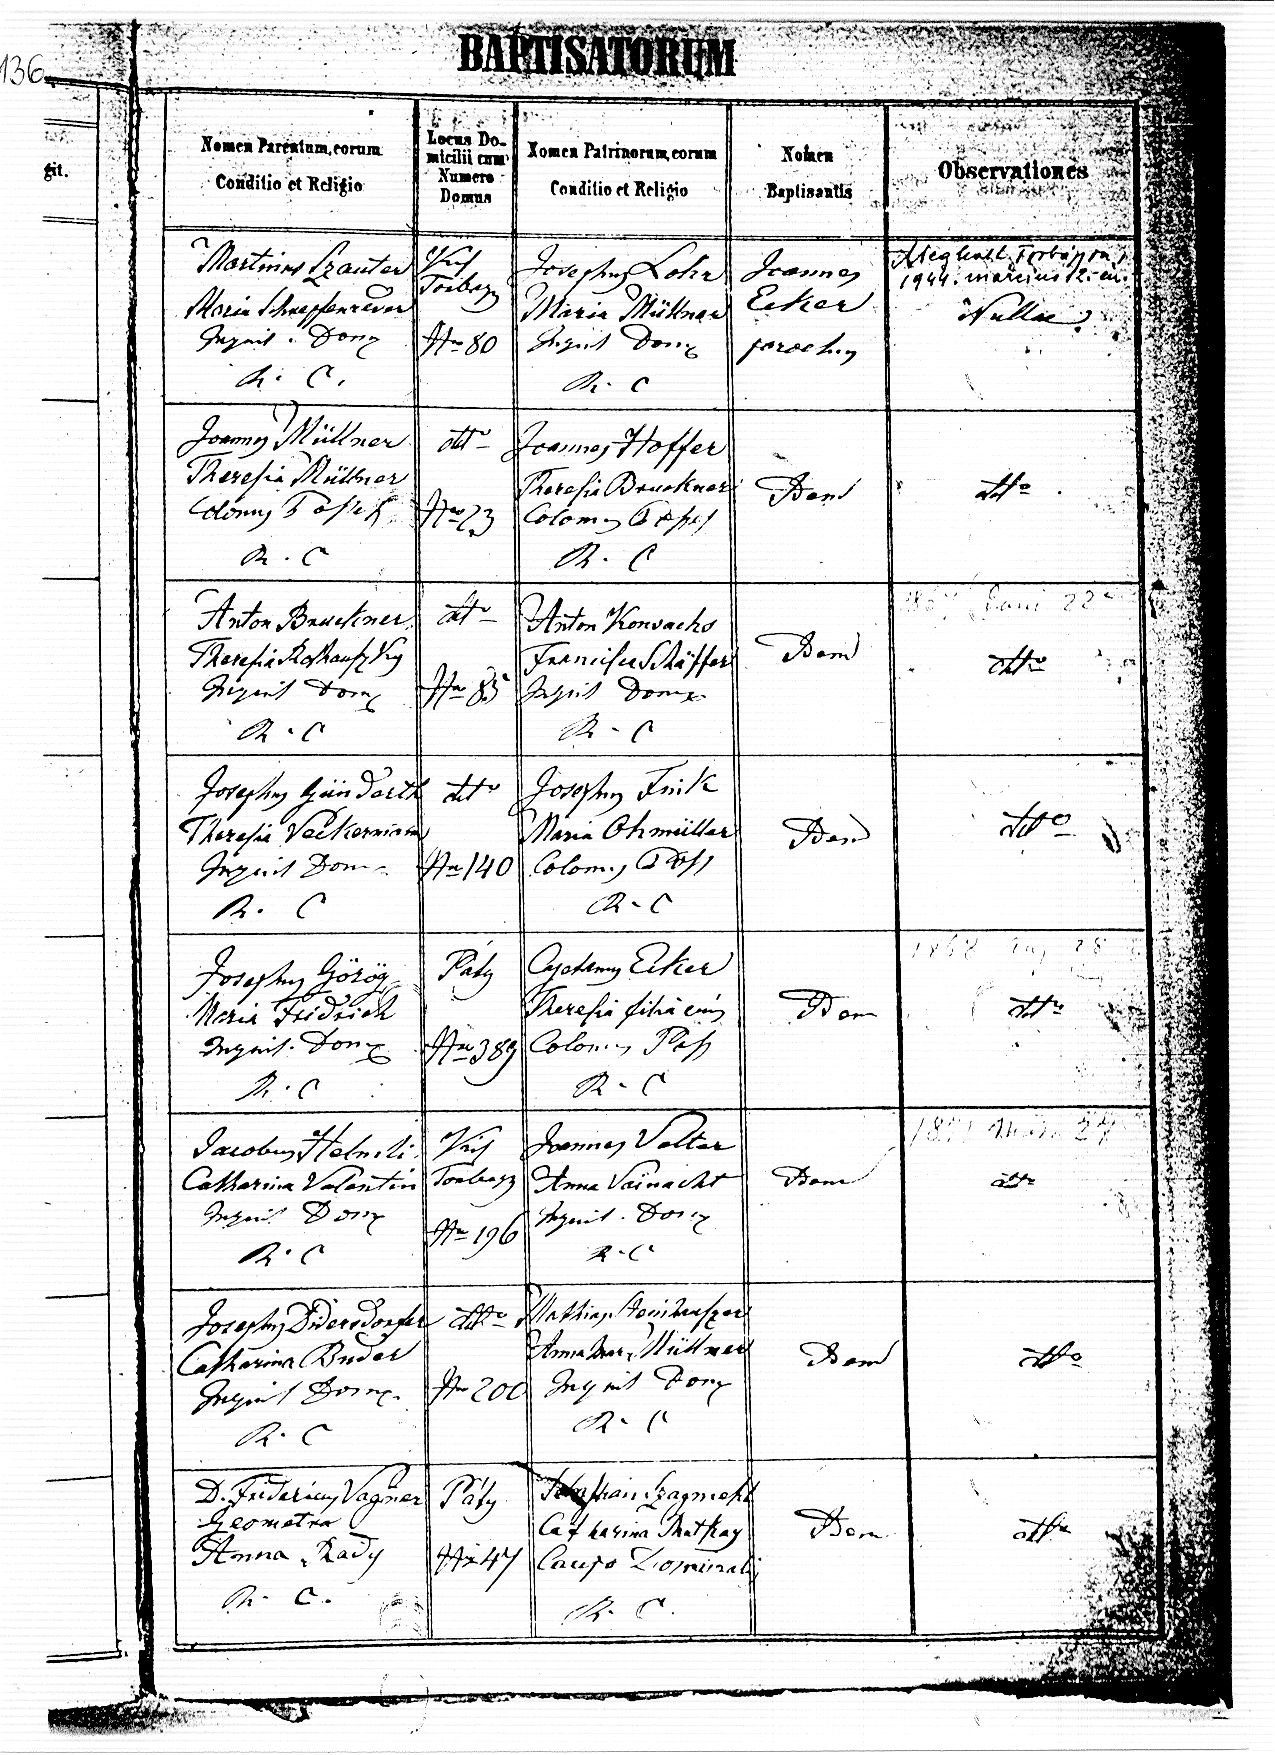 136
BAPTISATORUM
git.
Nomen Parentum, eorum
Conditio et Religio
Locus Do-
micilii cum
Numero
Domus
Nomen Patrinorum, eorum
Conditio et Religio
Nomen
Baptisantis
Observationes
Martinus Szauter
Maria
Inquil. Dom
R. C.
Torbagy
Nro 80
Josephus Lohr
Maria Müllner
Inquil Dom
R. C
Joannes
Ecker
parochus
Meghalt Torbágyon,
1944. március 12.-én.
Nullae
Joannes Müllner
Theresia Müllner
Colonus
R. C
dtto
Nro 23
Joannes Hoffer
Theresia Bruckner
Colonus
R. C
Idem
dtto
Anton Bruckner
Theresia
Inquil Dom
R. C
dtto
Nro 85
Anton Kovacks
Schäffer
Inquil Dom
R. C
Idem
22
dtto
Josephus Günderth
Theresia
Inquil Dom
R. C
dtto
Nro 140
Josephus Fink
Maria Ohmüller
Colonus
R. C
Idem
dtto
Josephus Görög
Maria Fridrich
Inquil. Dom
R. C
Páty
Nro 389
Cajetanus Ecker
Theresia filia eius
Colonus
R. C
Idem
28
dtto
Jacobus
Catharina Valentin
Inquil Dom
R. C
Torbagy
Nro 196
Joannes Velter
Anna Vainacht
Inquil. Dom
R. C
Idem
27
dtto
Josephus Didersdorfer
Catharina Bruder
Inquil Dom
R. C
dtto
Nro 200
Mathias
Anna Mar. Müllner
Inquil Dom
R. C
Idem
dtto
D. Fridericus Vagner
Geometra
Anna Rady
R. C.
Páty
Nro 47
Catharina
Caupo
R. C.
Idem
dtto